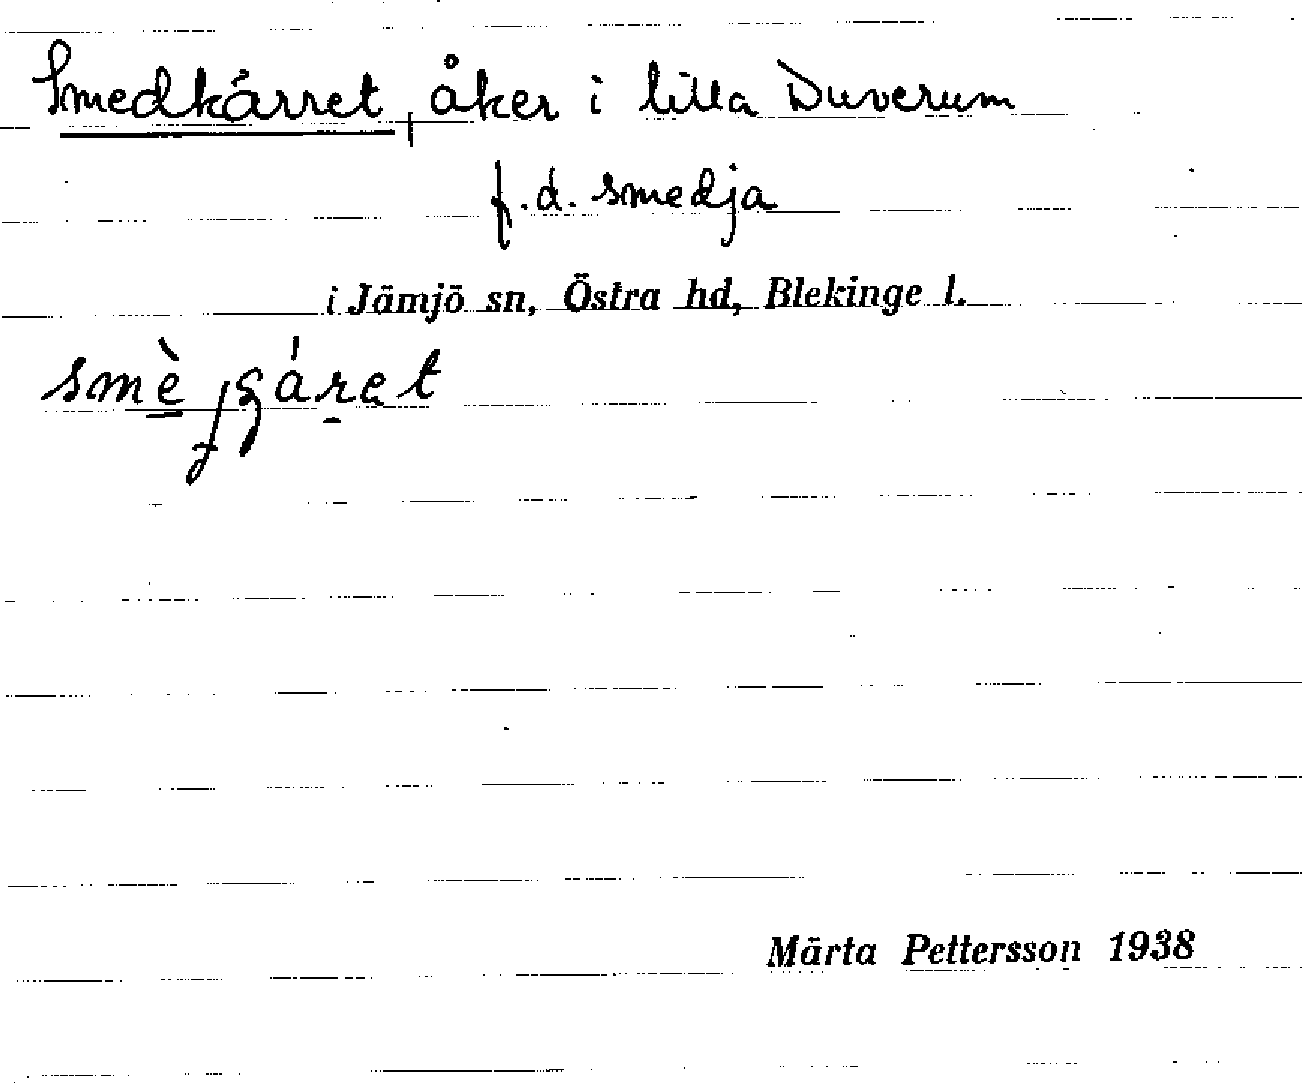 Smedkärret, åker i lilla Duverum
f.d. smedja
i Jämjö sn, Östra hd, Blekinge l.
Märta Pettersson 1938